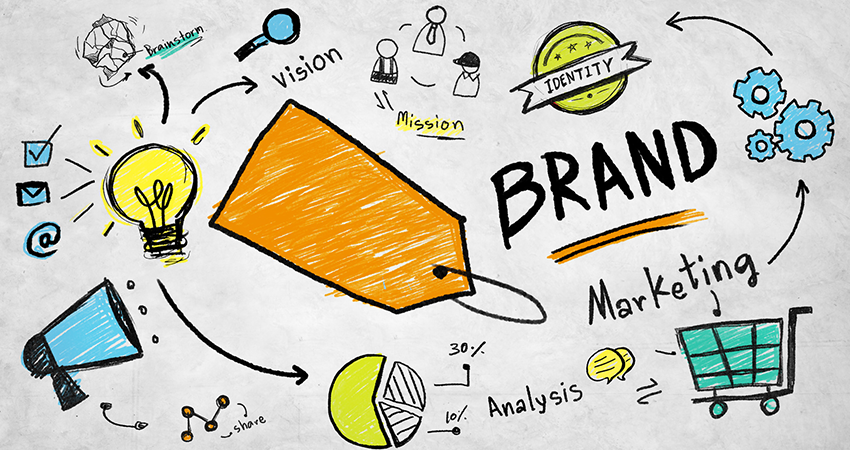 Brainstorm
Vision
Mission
IDENTITY
BRAND
@
Marketing
30%
10%
Analysis
share